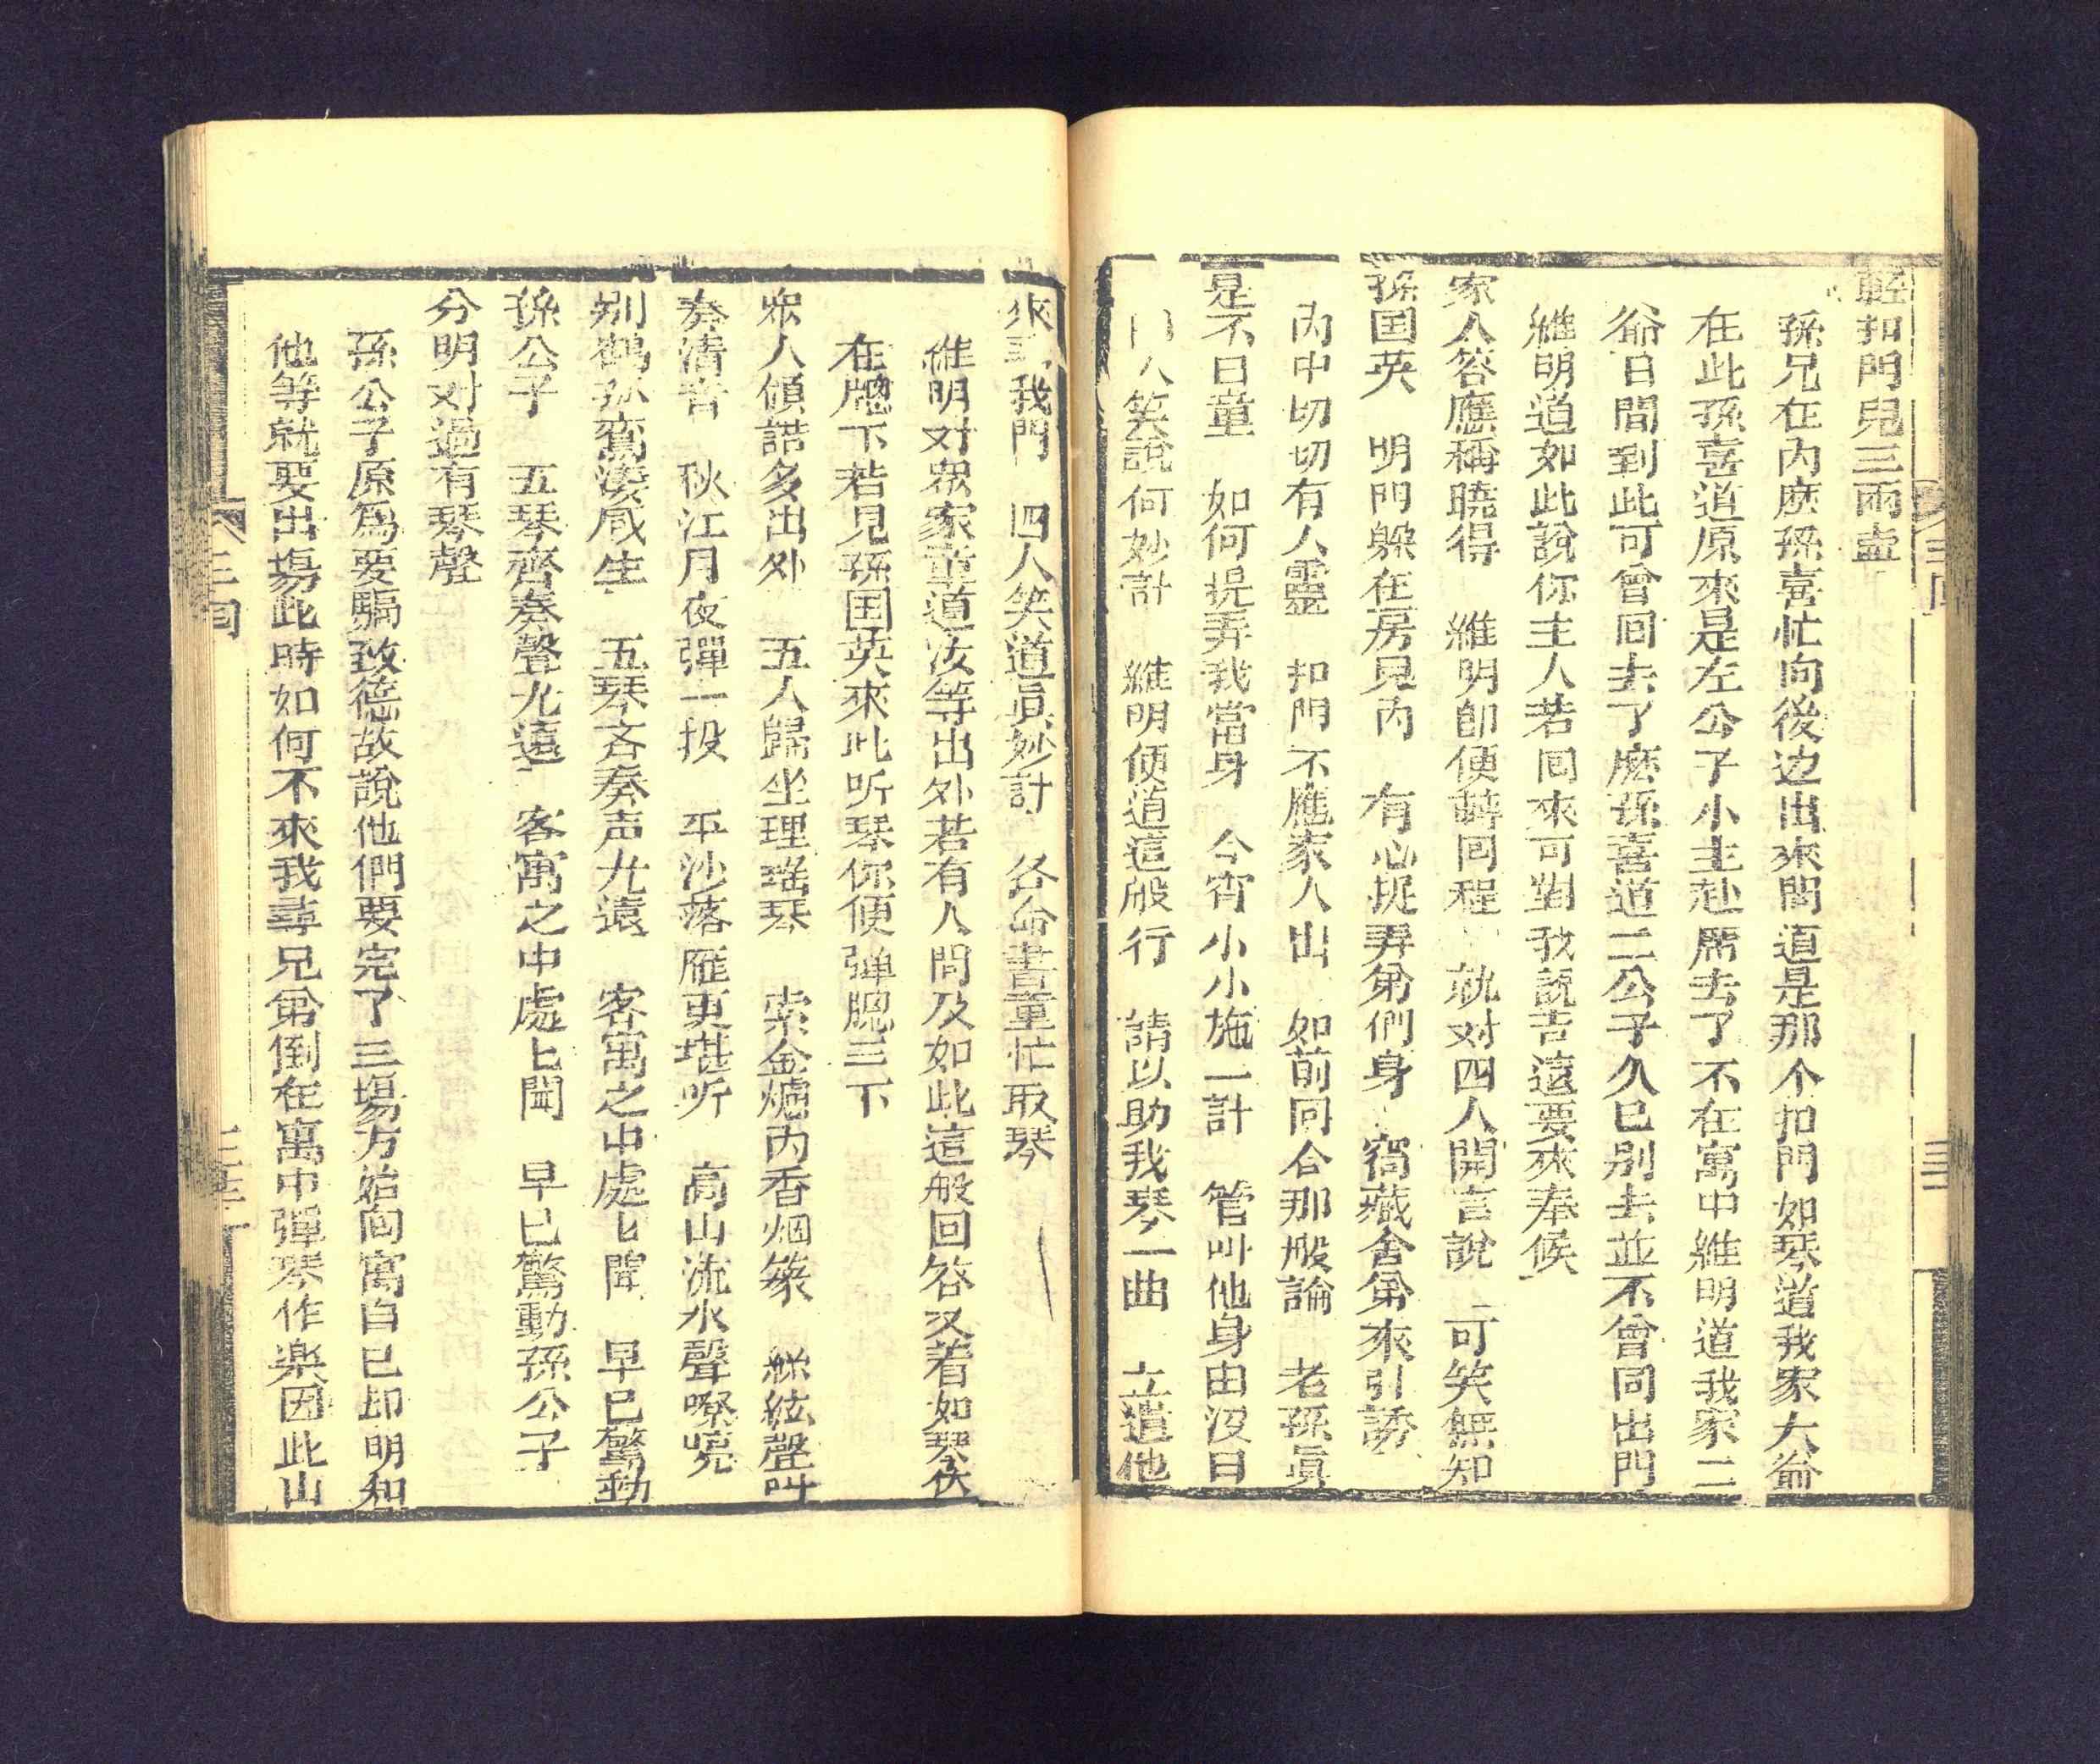 輕扣門兒三兩聲
孫兄在內庅孫喜忙向後边出來問道是那个扣門如琴道我家大爺
在此孫喜道原來是左公子小主赴席去了不在寓中維明道我家二
爺日間到此可曾回去了庅孫喜道二公子久已别去並不曾同出門
維明道如此說你主人若回來可對我說吉遠要來奉候
家人答應稱曉得　維明卽便轉囬程　就对四人開言說　可笑無知
孫囯英　明門躱在房兒內　有心捉弄弟們身　窩藏舍弟來引誘
內中切切有人靈　扣門不應家人出　如前囘合那般論　老孫眞
是不日童　如何捉弄我當身　今宵小小施一計　管叫他身由沒日
人笑說何妙計　維明便道這般行　請以助我琴一曲　立遣他
來　我門　四人笑道眞妙計　各命書童忙取琴
維明对眾家童道汝等出外若有人問及如此這般回答又着如琴伏
在牕下若見孫囯英來此听琴你便弹腿三下
眾人傾誥多出外　五人歸坐理瑤琴　索金爐內香烟篆　絲絃聲叫
奏清音　秋江月夜彈一投　平沙落雁更堪听　高山流水聲嘹喨
别鶴孤鸞湊咸生　五琴斉奏声九遠　客寓之中處匕聞　早已驚動
孫公子　五琴齊奏聲九遠　客寓之中處匕聞　早已驚動孫公子
分明对過有琴聲
孫公子原爲要騙致德故說他們要完了三場方始囘寓自已却明知
他等就要出場此時如何不來我尋兄弟倒在寓中彈琴作楽因此山
三回